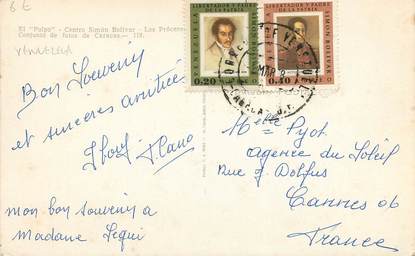 6E
El "Pulpo" - Centro Simón Bolívar - Los Próceres
Conjunto de fotos de Caracas.- 112.
VENEZUELA
Bon Souvenir
et sincères amitiés
Cano
mon bon souvenir a
Madame
LIBERTADOR Y PADRE
DE LA PATRIA
VENEZUELA
SIMON BOLIVAR
0,20
LIBERTADOR Y PADRE
DE LA PATRIA
VENEZUELA
SIMON BOLIVAR
0,40
CORREOS DE VENEZUELA
MAR
CARACAS D.F.
Pyot
agence du Soleil
Rue J Dolfus
Cannes 06
France